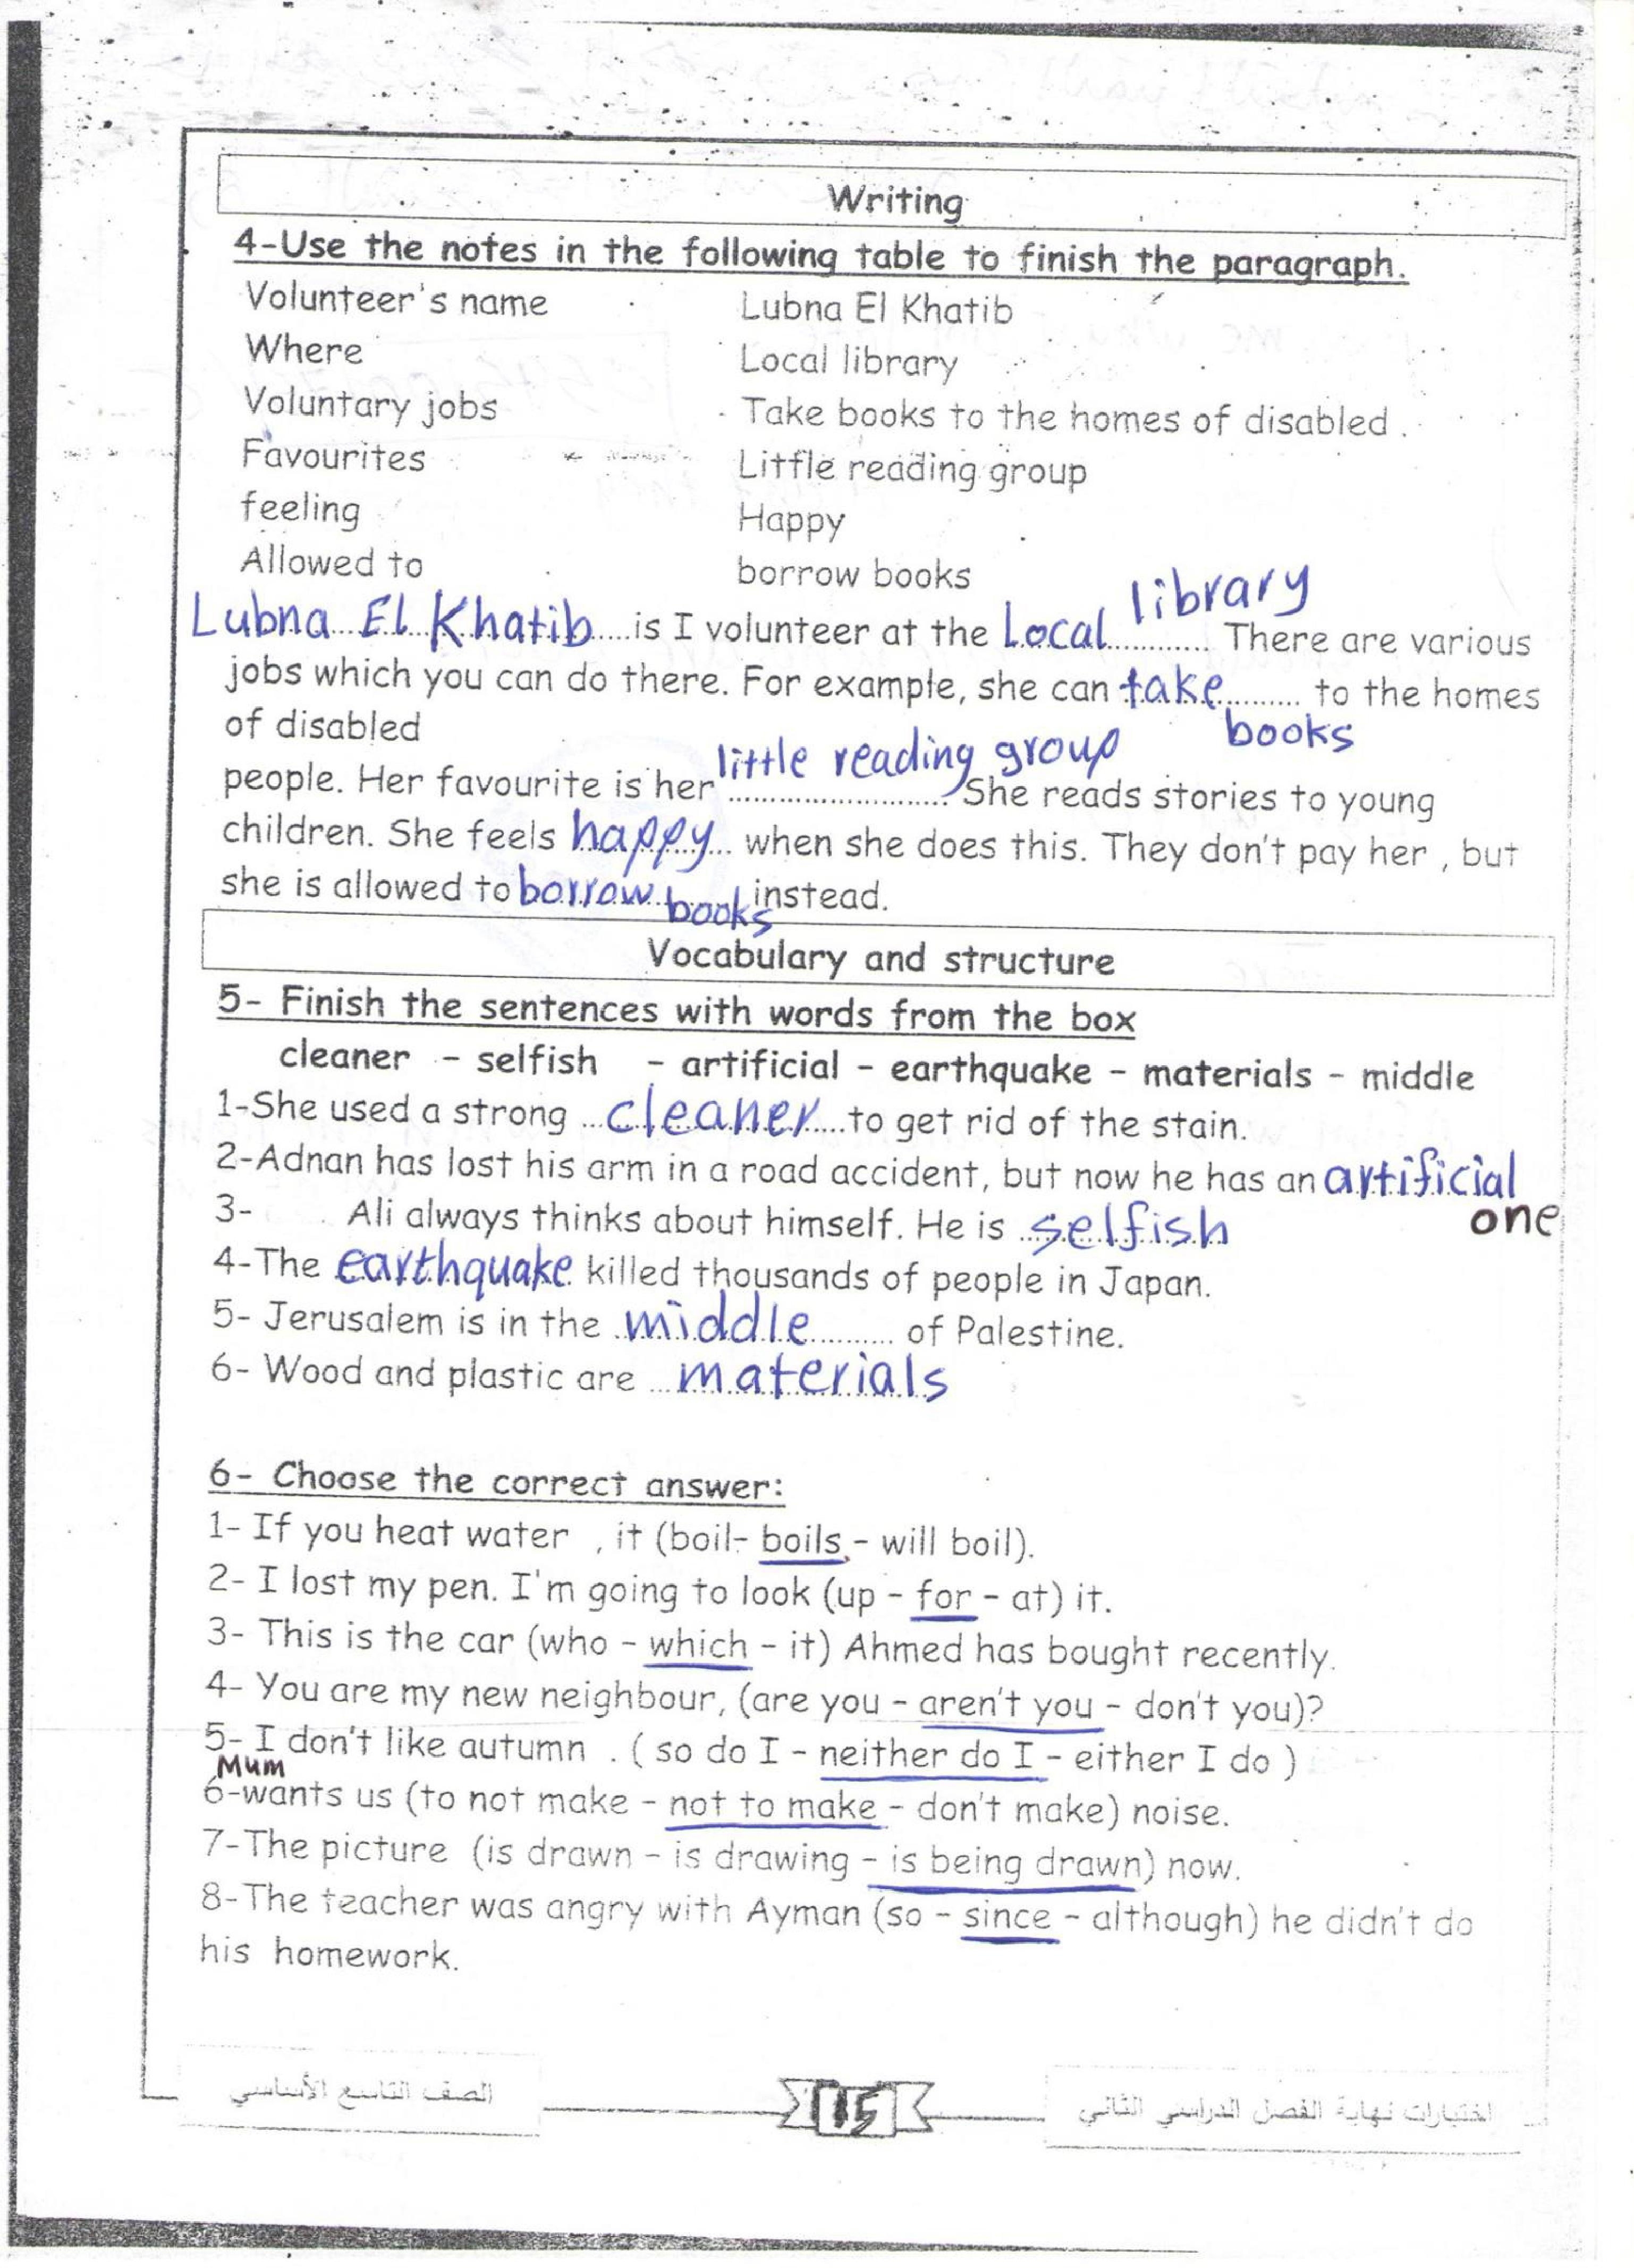 Writing
4-Use the notes in the following table to finish the paragraph.
Volunteer's name Lubna El Khatib
Where Local library
Voluntary jobs Take books to the homes of disabled .
Favourites Little reading group
feeling Happy
Allowed to borrow books
Lubna El Khatib is I volunteer at the Local library There are various
jobs which you can do there. For example, she can take books to the homes
of disabled
people. Her favourite is her little reading group She reads stories to young
children. She feels happy when she does this. They don't pay her , but
she is allowed to borrow books instead.
Vocabulary and structure
5- Finish the sentences with words from the box
cleaner - selfish - artificial - earthquake - materials - middle
1-She used a strong cleaner to get rid of the stain.
2-Adnan has lost his arm in a road accident, but now he has an artificial one
3- Ali always thinks about himself. He is selfish
4-The earthquake killed thousands of people in Japan.
5- Jerusalem is in the middle of Palestine.
6- Wood and plastic are materials
6- Choose the correct answer:
1- If you heat water , it (boil- boils - will boil).
2- I lost my pen. I'm going to look (up - for - at) it.
3- This is the car (who - which - it) Ahmed has bought recently.
4- You are my new neighbour, (are you - aren't you - don't you)?
5- I don't like autumn . ( so do I - neither do I - either I do )
Mum
6-wants us (to not make - not to make - don't make) noise.
7-The picture (is drawn - is drawing - is being drawn) now.
8-The teacher was angry with Ayman (so - since - although) he didn't do
his homework.
اختبارات نهاية الفصل الدراسي الثاني 15 الصف التاسع الأساسي